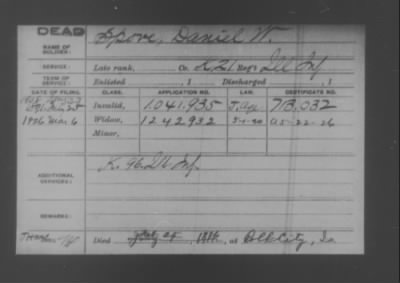 DEAD
NAME OF SOLDIER: Spove, Daniel W.
SERVICE: Late rank, Co. K 21 Reg't Ill Inf
TERM OF SERVICE: Enlisted , 1 Discharged , 1
DATE OF FILING. CLASS. APPLICATION NO. LAW. CERTIFICATE NO.
Invalid, 1.041.935 713.032
1926 Mar 6 Widow, 1242932 5-1-20 a5-22-26
Minor,
ADDITIONAL SERVICES: K. 96 Ill Inf.
REMARKS:
Died , at Elk City,